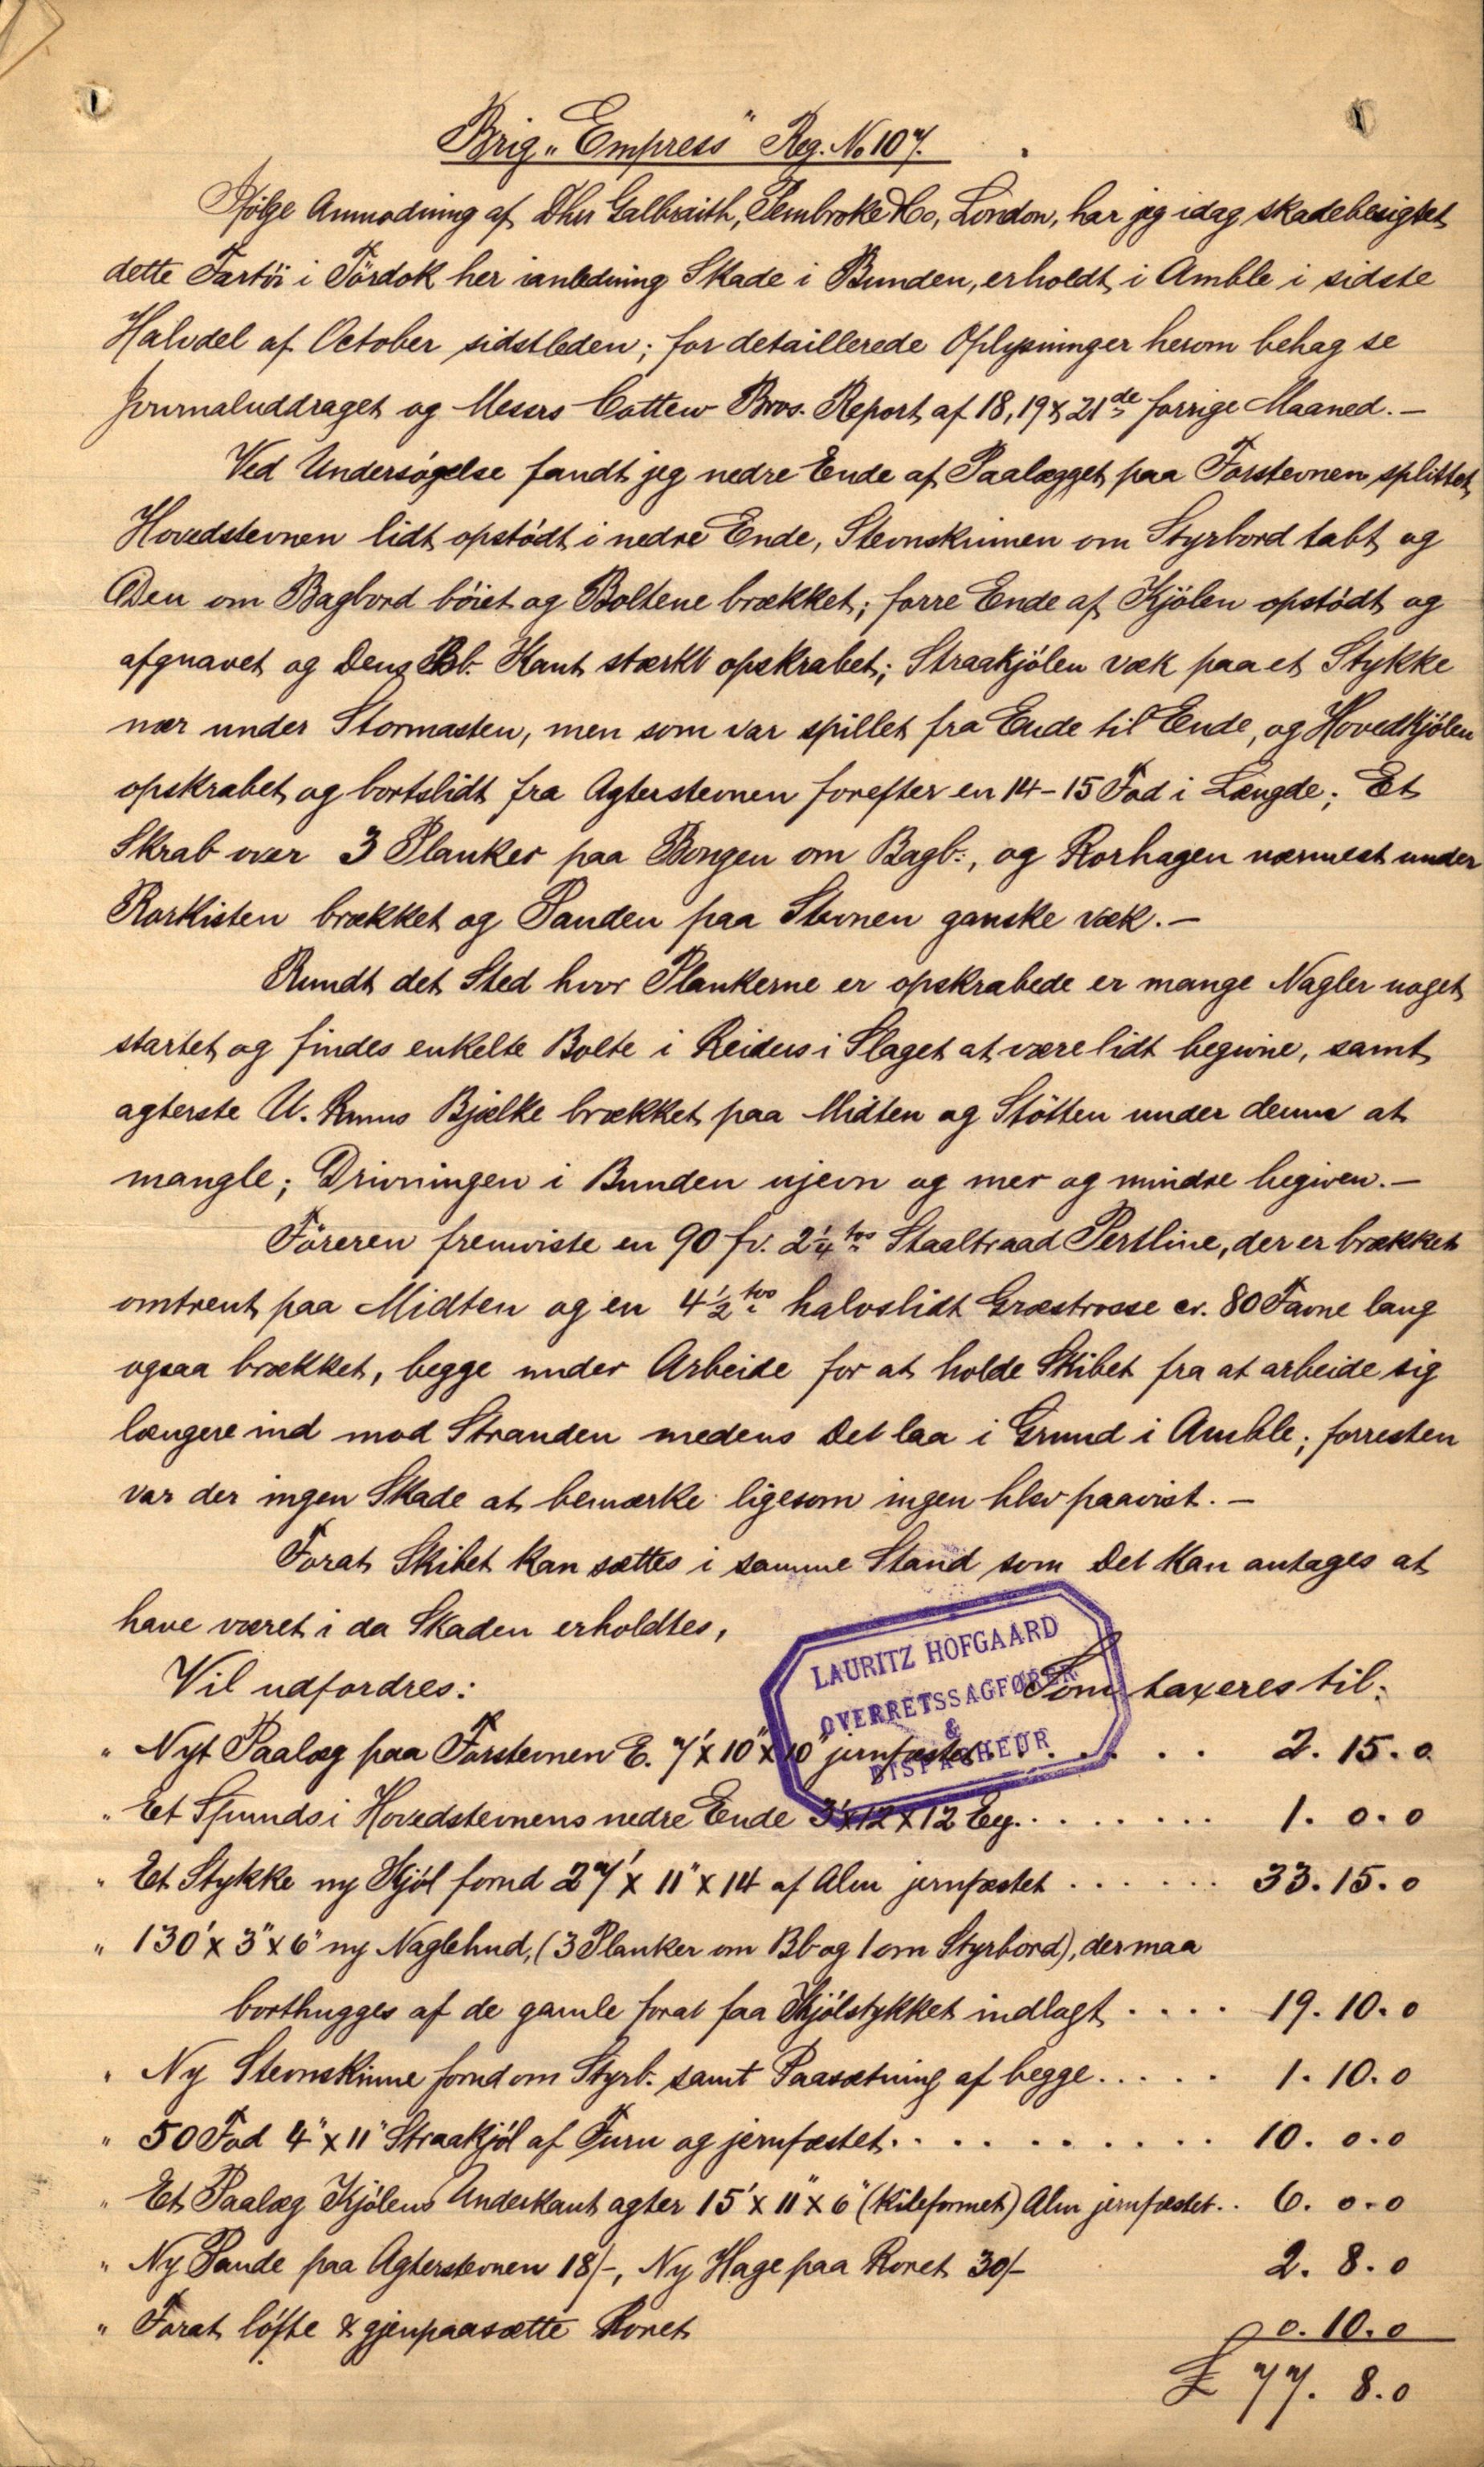 Brig „Empress" Reg. No 107.
Ifölge Anmodning af Dhrr Galbraith, Pembroke & Co, London, har jeg idag skadebesigtet
dette Fartöi i Tördok her ianledning Skade i Bunden, erholdt i Amble i sidste
Halvdel af October sidstleden; for detaillerede Oplysninger herom behag se
Journaluddraget og Messrs Cottew Bros. Report af 18, 19 & 21de forrige Maaned. —
Ved Undersögelse fandt jeg nedre Ende af Paalægget paa Forstevnen splittet,
Hovedstevnen lidt opstödt i nedre Ende, Stevnskinnen om Styrbord tabt og
Den om Bagbord böiet og Boltene brækket; forre Ende af Kjölen opstödt og
afgnavet og Dens Bb. Kant stærkt opskrabet; Straakjölen væk paa et Stykke
nær under Stormasten, men som var spillet fra Ende til Ende, og Hovedkjölen
opskrabet og bortslidt fra Agterstevnen forefter en 14 – 15 Fod i Længde; Et
Skrab over 3 Planker paa Bougen om Bagb:, og Rorhagen nærmest under
Rorkisten brækket og Panden paa Stevnen ganske væk. —
Rundt det Sted hvor Plankerne er opskrabede er mange Nagler noget
startet og findes enkelte Bolte i Reiders i Slaget at være lidt begivne, samt
agterste U. Rums Bjælke brækket paa Midten og Stötten under denne at
mangle; Drivningen i Bunden ujevn og mer og mindre begiven. —
Föreren fremviste en 90 fv. 2¼ tos Staaltraad Pertline, der er brækket
omtrent paa Midten og en 4½ tos halvslidt Græstrosse cr. 80 Favne lang
ogsaa brækket, begge under Arbeide for at holde Skibet fra at arbeide sig
længere ind mod Stranden medens Det laa i Grund i Amble; forresten
var der ingen Skade at bemærke ligesom ingen blev paavist. —
Forat Skibet kan sættes i samme Stand som Det kan antages at
have været i da Skaden erholdtes,
LAURITZ HOFGAARD
OVERRETSSAGFØRER
&
DISPACHEUR
Vil udfordres: Som taxeres til:
" Nyt Paalæg paa Forstevnen E. 7' x 10" x 10" jernfæstet . . . . . 2. 15. 0
" Et Spunds i Hovedstevnens nedre Ende 3' x 12 x 12 Eg. . . . . . . 1. 0. 0
" Et Stykke ny Kjöl forud 27' x 11" x 14 af Alm jernfæstet . . . . . . 33. 15. 0
" 130' x 3" x 6" ny Naglehud, (3 Planker om Bb og 1 om Styrbord), der maa
borthugges af de gamle forat faa Kjölstykket indlagt . . . . 19. 10. 0
" Ny Stevnskinne forud om Styrb. samt Paasætning af begge . . . . . 1. 10. 0
" 50 Fod 4" x 11" Straakjöl af Furu og jernfæstet . . . . . . . . . . 10. 0. 0
" Et Paalæg Kjölens Underkant agter 15' x 11" x 6" (Kileformet) Alm jernfæstet . . 6. 0. 0
" Ny Pande paa Agterstevnen 18/-, Ny Hage paa Roret 30/- 2. 8. 0
" Forat löfte & gjenpaasætte Roret 0. 10. 0
£ 77. 8. 0